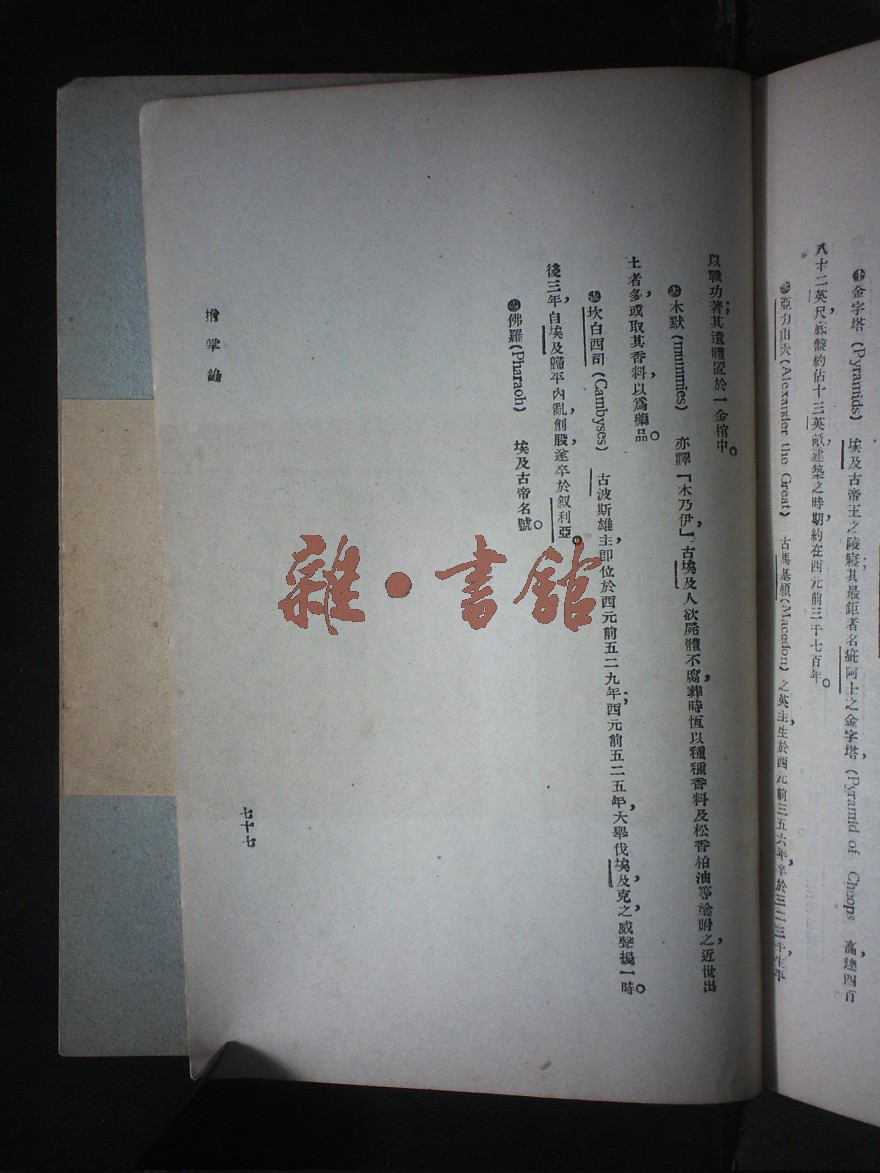 金字塔(Pyramids) 埃及古帝王之陵寢;其最鉅者,名疵阿士之金字塔(Pyramid of Cheops),高達四百
八十二英尺,底盤約佔十三英畝,建築之時期,約在西元前三千七百年。
亞力山大(Alexander the Great) 古馬基頓(Macedon)之英主,生於西元前三五六年,卒於三二三年,生平
以戰功著;其遺體置於一金棺中。
木默(mummies) 亦譯「木乃伊」,古埃及人欲屍體不腐,葬時恆以種種香料及松香柏油等塗附之,近世出
土者,多或取其香料以為藥品。
坎白西司(Cambyses) 古波斯雄主,即位於西元前五二九年;西元前五二五年,大舉伐埃及,克之,威聲揚一時。
後三年,自埃及歸平內亂,創股,遂卒於叙利亞。
佛羅(Pharaoh) 埃及古帝名號。
指掌論
七十七
雜·書館